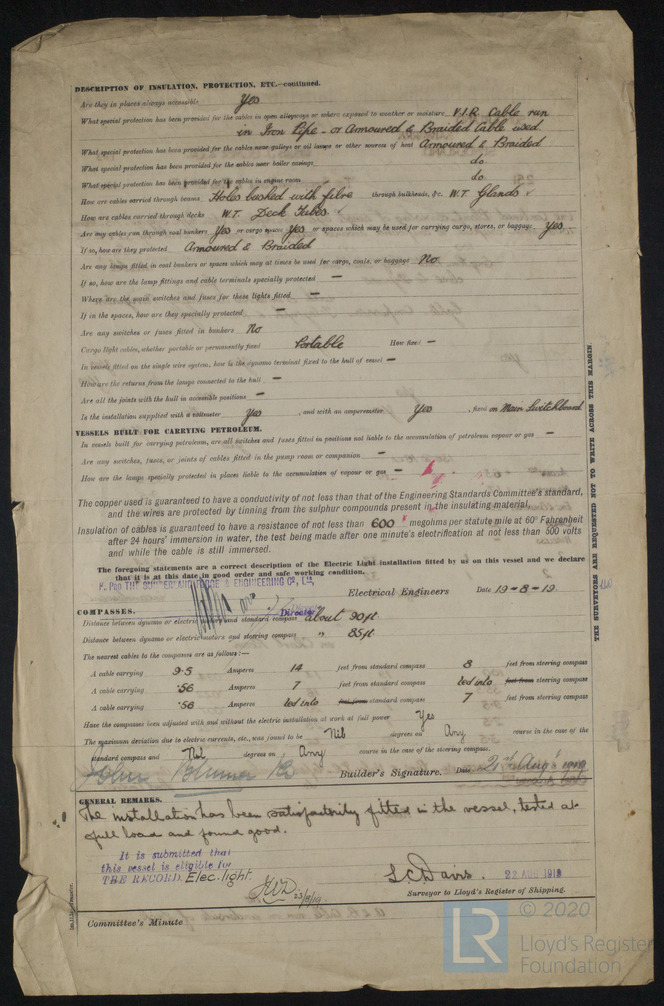 DESCRIPTION OF INSULATION, PROTECTION, ETC.—continued.
Are they in places always accessible Yes
What special protection has been provided for the cables in open alleyways or where exposed to weather or moisture V.I.R. Cable run
in Iron Pipe - or Armoured & Braided Cable used
What special protection has been provided for the cables near galleys or oil lamps or other sources of heat Armoured & Braided
What special protection has been provided for the cables near boiler casings do.
What special protection has been provided for the cables in engine room do.
How are cables carried through beams Holes bushed with fibre through bulkheads, &c. W.T. Glands
How are cables carried through decks W.T. Deck Tubes
Are any cables run through coal bunkers Yes or cargo spaces Yes or spaces which may be used for carrying cargo, stores, or baggage Yes
If so, how are they protected Armoured & Braided
Are any lamps fitted in coal bunkers or spaces which may at times be used for cargo, coals, or baggage No
If so, how are the lamp fittings and cable terminals specially protected —
Where are the main switches and fuses for these lights fitted —
If in the spaces, how are they specially protected —
Are any switches or fuses fitted in bunkers No
Cargo light cables, whether portable or permanently fixed Portable How fixed —
In vessels fitted on the single wire system, how is the dynamo terminal fixed to the hull of vessel —
How are the returns from the lamps connected to the hull —
Are all the joints with the hull in accessible positions —
Is the installation supplied with a voltmeter Yes, and with an amperemeter Yes, fixed on Main Switchboard
VESSELS BUILT FOR CARRYING PETROLEUM.
In vessels built for carrying petroleum, are all switches and fuses fitted in positions not liable to the accumulation of petroleum vapour or gas —
Are any switches, fuses, or joints of cables fitted in the pump room or companion —
How are the lamps specially protected in places liable to the accumulation of vapour or gas —
The copper used is guaranteed to have a conductivity of not less than that of the Engineering Standards Committee's standard,
and the wires are protected by tinning from the sulphur compounds present in the insulating material.
Insulation of cables is guaranteed to have a resistance of not less than 600 megohms per statute mile at 60° Fahrenheit
after 24 hours' immersion in water, the test being made after one minute's electrification at not less than 500 volts
and while the cable is still immersed.
The foregoing statements are a correct description of the Electric Light installation fitted by us on this vessel and we declare
that it is at this date in good order and safe working condition.
THE SUNDERLAND FORGE & ENGINEERING CO., LTD.,
Director Electrical Engineers Date 19-8-19
COMPASSES.
Distance between dynamo or electric motors and standard compass about 90ft
Distance between dynamo or electric motors and steering compass " 85ft
The nearest cables to the compasses are as follows:—
A cable carrying 9.5 Amperes 14 feet from standard compass 8 feet from steering compass
A cable carrying .56 Amperes 7 feet from standard compass led into feet from steering compass
A cable carrying .56 Amperes led into feet from standard compass 7 feet from steering compass
Have the compasses been adjusted with and without the electric installation at work at full power Yes
The maximum deviation due to electric currents, etc., was found to be Nil degrees on Any course in the case of the
standard compass and Nil degrees on Any course in the case of the steering compass.
John Blumer & Co Builder's Signature. Date 21st Aug 1919
GENERAL REMARKS.
The installation has been satisfactorily fitted in the vessel, tested at
full load and found good.
It is submitted that
this vessel is eligible for
THE RECORD. Elec. light
23/8/19
L C Davis. 22 AUG 1919
Surveyor to Lloyd's Register of Shipping.
Committee's Minute
THE SURVEYORS ARE REQUESTED NOT TO WRITE ACROSS THIS MARGIN.
LR
© 2020
Lloyd's Register
Foundation